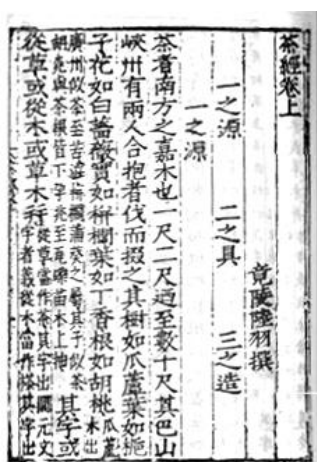 茶經卷上
竟陵陸羽撰
一之源 二之具 三之造
一之源
茶者南方之嘉木也一尺二尺迺至數十尺其巴山
峽州有兩人合抱者伐而掇之其樹如瓜蘆葉如梔
子花如白薔薇實如栟櫚葉如丁香根如胡桃瓜蘆木出
廣州似茶至苦澀栟櫚蒲葵之屬其子似茶
胡桃與茶根皆下孕兆至瓦礫苗木上抽其字或
從草或從木或草木并從草當作茶其字出開元文
字者義從木當作梌其字出